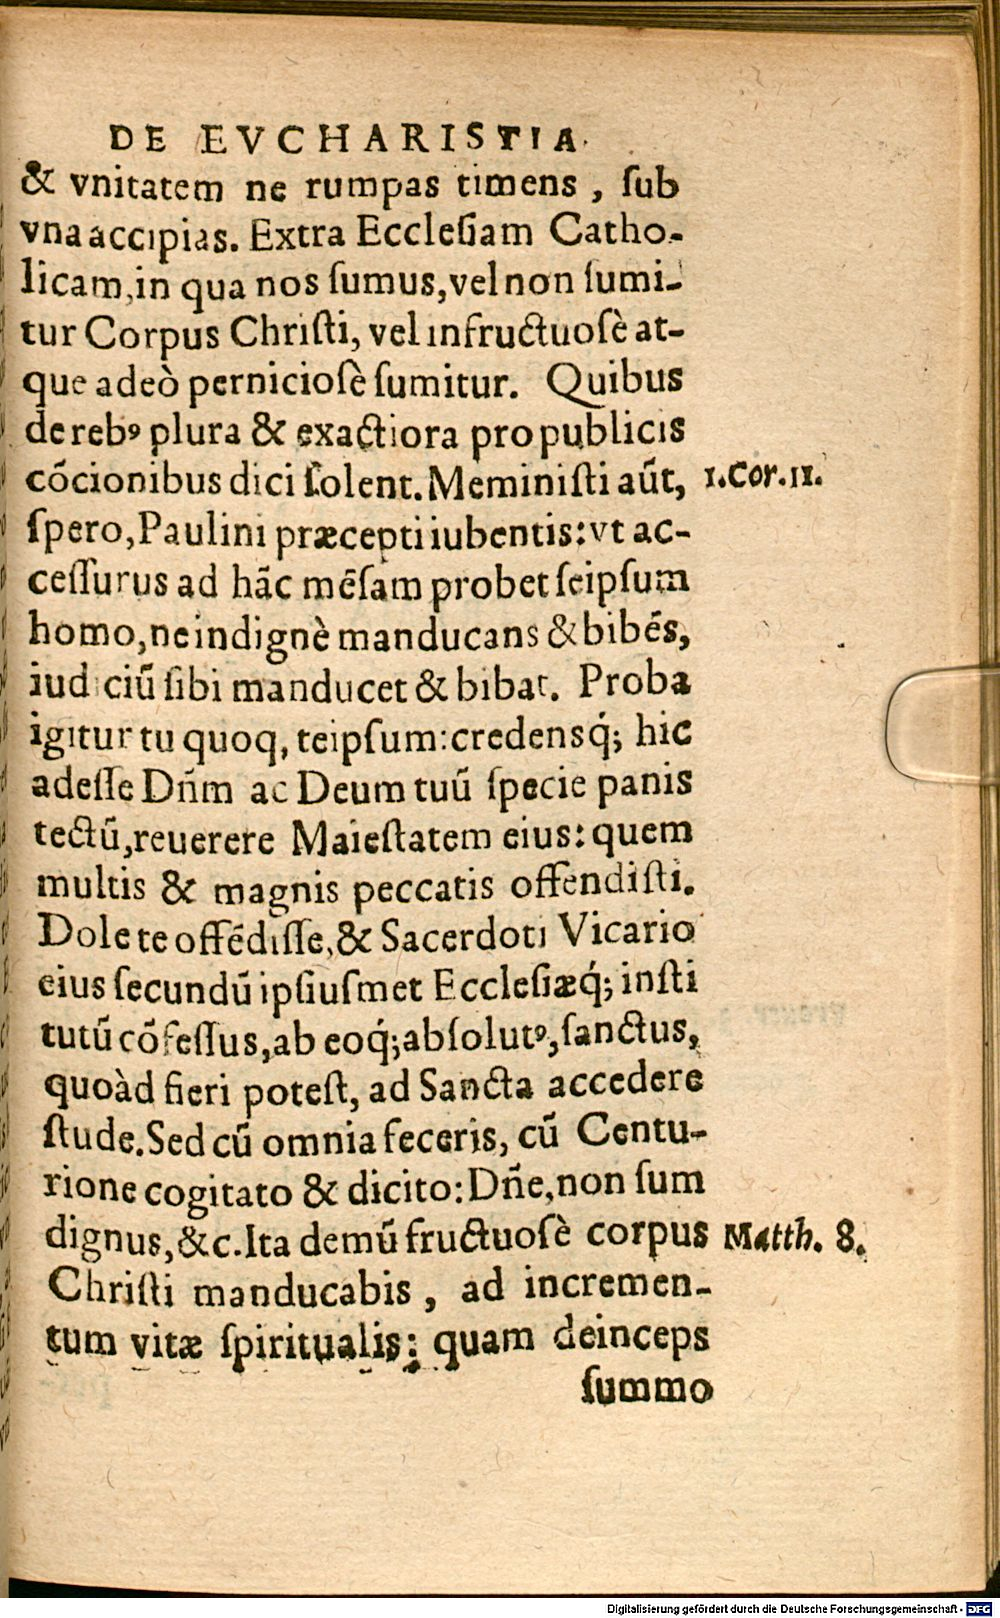 DE EVCHARISTIA.
& vnitatem ne rumpas timens, ſub
vna accipias. Extra Eccleſiam Catho-
licam, in qua nos ſumus, vel non ſumi-
tur Corpus Chriſti, vel infructuoſè at-
que adeò pernicioſè ſumitur. Quibus
de rebꝰ plura & exactiora pro publicis
cõcionibus dici ſolent. Meminiſti aũt, 1. Cor. 11.
ſpero, Paulini præcepti iubentis: vt ac-
ceſſurus ad hãc mẽſam probet ſeipſum
homo, ne indignè manducans & bibẽs,
iudiciũ ſibi manducet & bibat. Proba
igitur tu quoq, teipſum: credensq́; hic
adeſſe Dñm ac Deum tuũ ſpecie panis
tectũ, reuerere Maieſtatem eius: quem
multis & magnis peccatis offendiſti.
Dole te offẽdiſſe, & Sacerdoti Vicario
eius ſecundũ ipſiuſmet Eccleſiæq́; inſti
tutũ cõfeſſus, ab eoq́; abſolutꝰ, ſanctus,
quoàd fieri poteſt, ad Sancta accedere
ſtude. Sed cũ omnia feceris, cũ Centu-
rione cogitato & dicito: Dñe, non ſum
dignus, &c. Ita demũ fructuoſè corpus Matth. 8.
Chriſti manducabis, ad incremen-
tum vitæ ſpiritualis: quam deinceps
ſummo
Digitalisierung gefördert durch die Deutsche Forschungsgemeinschaft - DFG